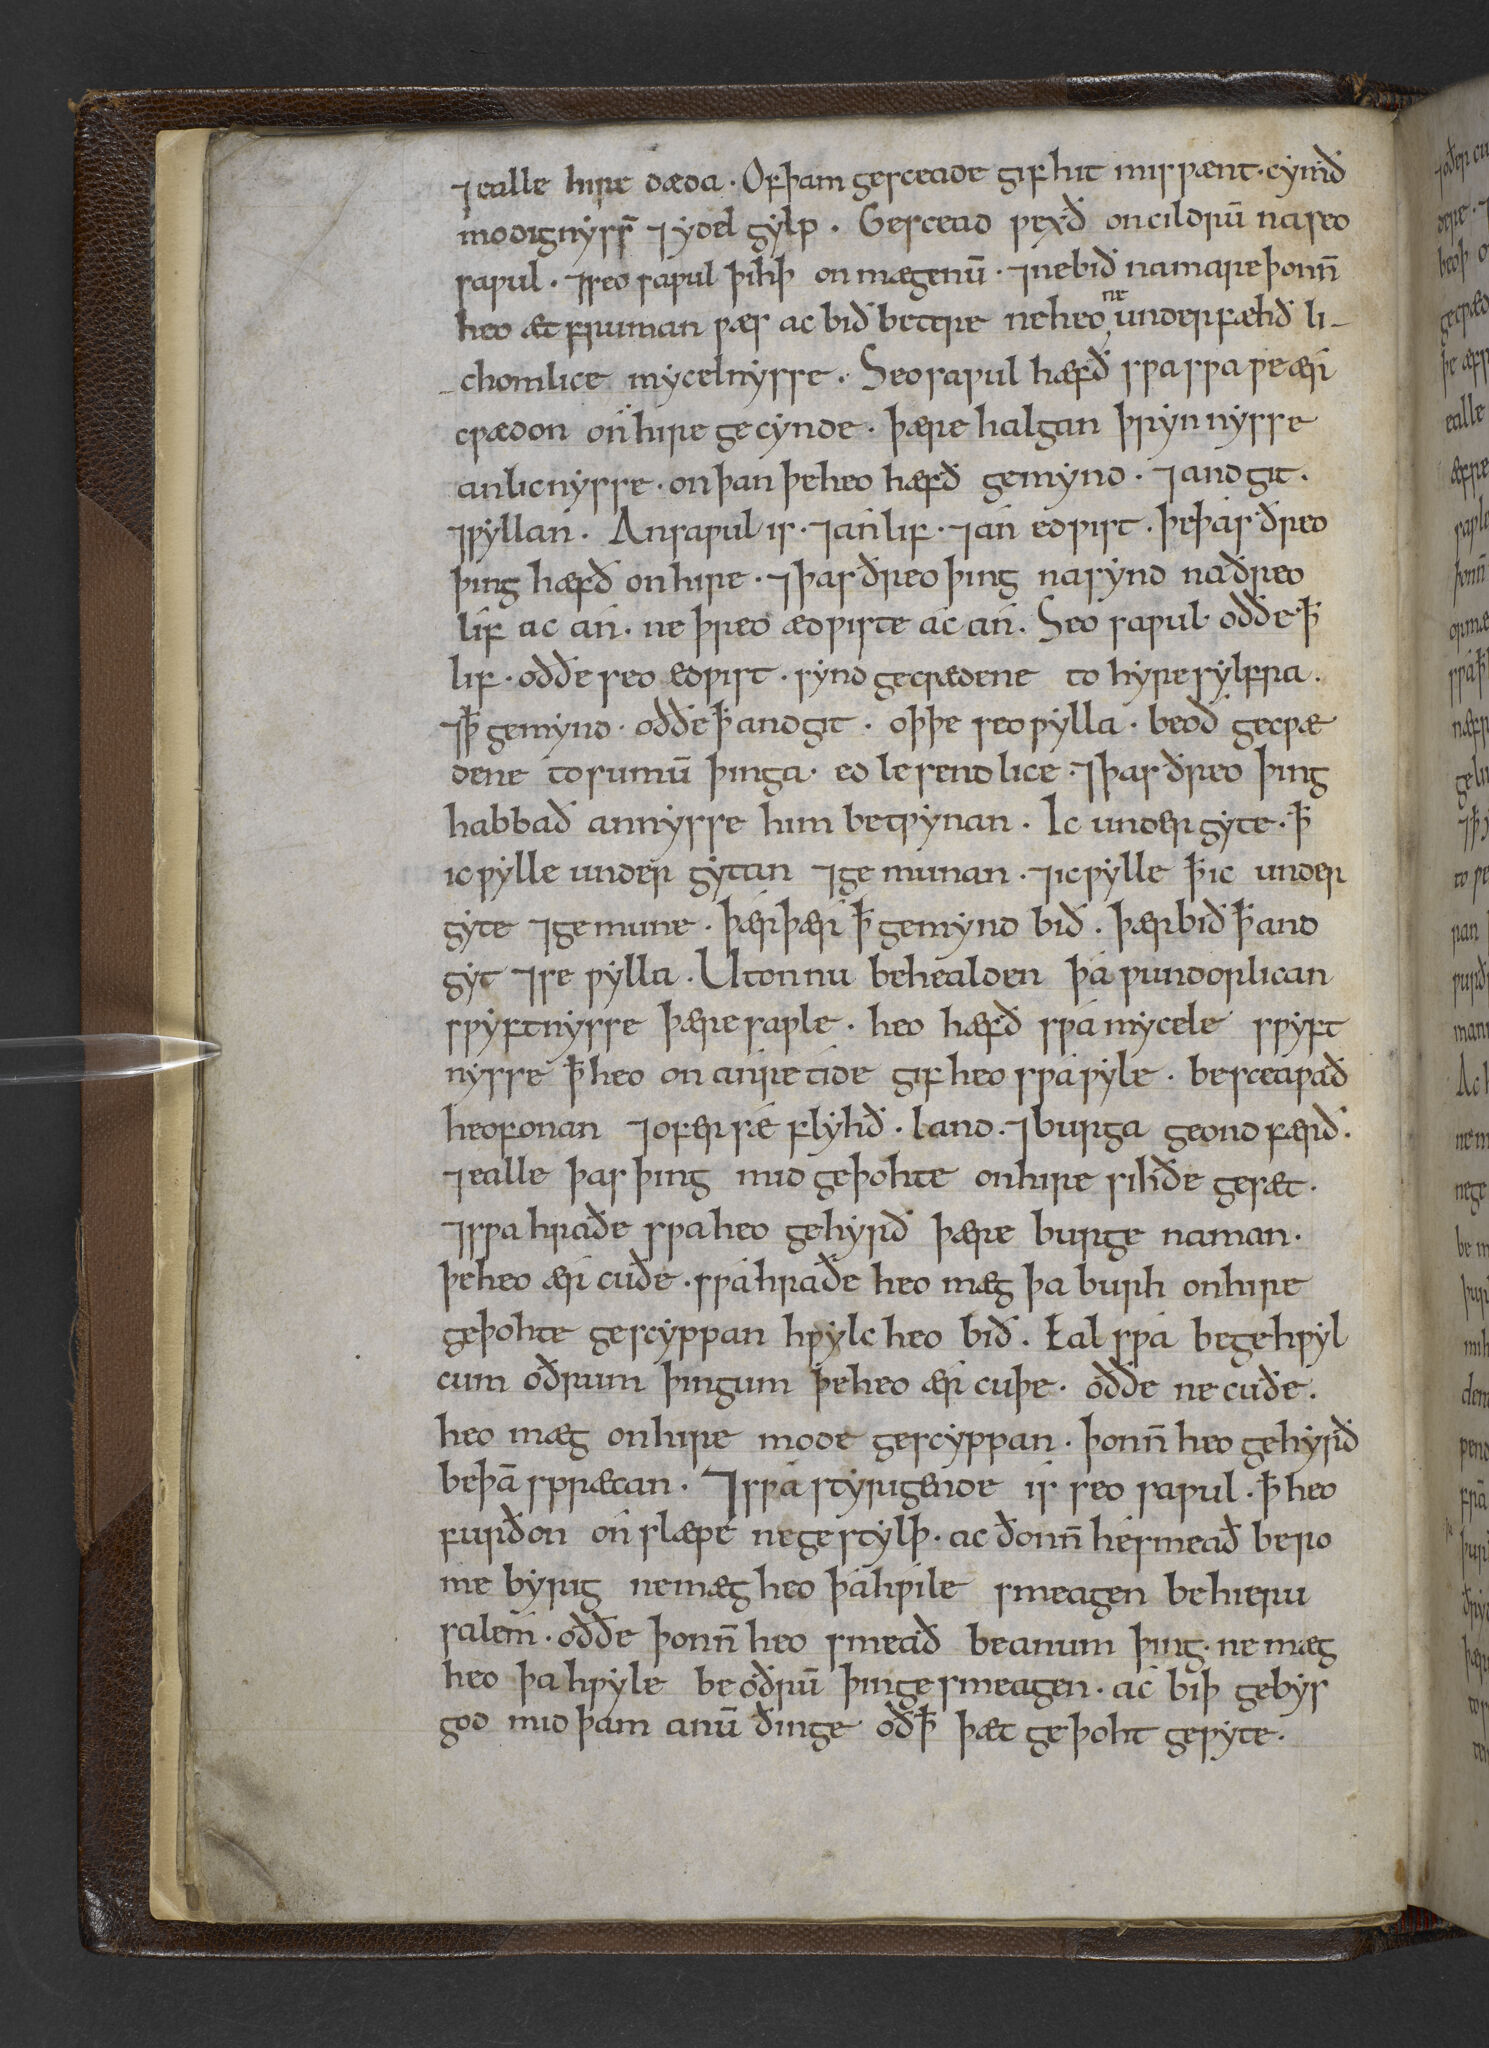 ⁊ ealle hire dæda. Of þam gesceade gif hit miswænt. cymð
modignyss̄ ⁊ ydel gylp. Gescead wexð on cildrū na seo
sawul. ⁊ seo sawul þihþ on mægenū. ⁊ ne bið na mare þonn̄
heo æt fruman wæs ac bið betere ne heo ne underfæhð li-
chomlice mycelnysse. Seo sawul hæfð swa swa we ær
cwædon on hire gecynde. þære halgan þrynnysse
anlicnysse. on þan þe heo hæfð gemynd. ⁊ andgit.
⁊ wyllan. An sawul is. ⁊ án lif. ⁊ án edwist. þe þás ðreo
þing hæfð on hire. ⁊ þas ðreo þing na synd na ðreo
lif ac án. ne þreo ædwiste ac án. Seo sawul oððe ꝥ
lif. oððe seo edwist. synd gecwædene to hyre sylfra.
⁊ ꝥ gemynd. oððe ꝥ andgit. oþþe seo wylla. beoð gecwæ
dene to sumū þinga. edlesendlice. ⁊ þas ðreo þing
habbað annysse him betwynan. Ic undergyte. ꝥ
ic wylle undergytan ⁊ gemunan. ⁊ ic wylle ꝥ ic under
gyte ⁊ gemune. þær þær ꝥ gemynd bið. þær bið ꝥ and
gyt ⁊ se wylla. Uton nu behealden þá wundorlican
swyftnysse þære sawle. heo hæfð swá mycele swyft
nysse ꝥ heo on anre tide gif heo swá wyle. besceawað
heofonan ⁊ ofer sǽ flyhð. land. ⁊ burga geondfærð.
⁊ ealle þas þing mid geþohte on hire sihðe gesæt.
⁊ swa hraðe swa heo gehyrð þære burge naman.
þe heo ær cuðe. swá hraðe heo mæg þa burh on hire
geþohte gescyppan hwylc heo bið. Eal swá be gehwyl
cum oðrum þingum þe heo ær cuþe. oððe ne cuðe.
heo mæg on hire mode gescyppan. þonn̄ heo gehyrð
be þā sprǣcan. ⁊ swá styrigende is seo sawul. ꝥ heo
furðon on slæpe ne gestylþ. ac ðonn̄ he smeað be ro
me byrig ne mæg heo þá hwile smeagen be hieru
salem. oððe þonn̄ heo smeað be anum þing. ne mæg
heo þa hwyle be oðrū þinge smeagen. ac biþ gebys
god mid þam anū ðinge oðꝥ þæt geþoht gewyte.